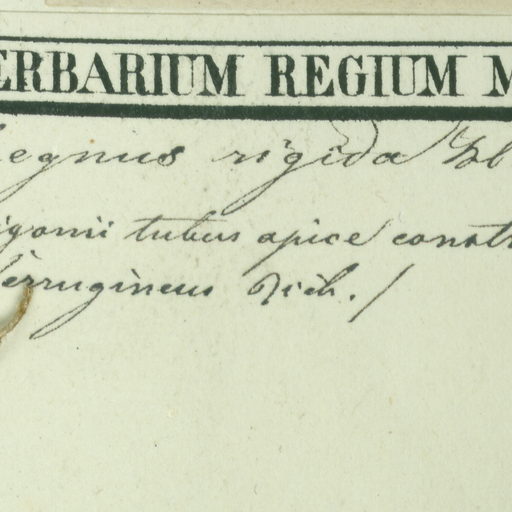 ERBARIUM REGIUM M
egnus rigida Bl
igonii tubus apice constr
ferrugineus Rich. /